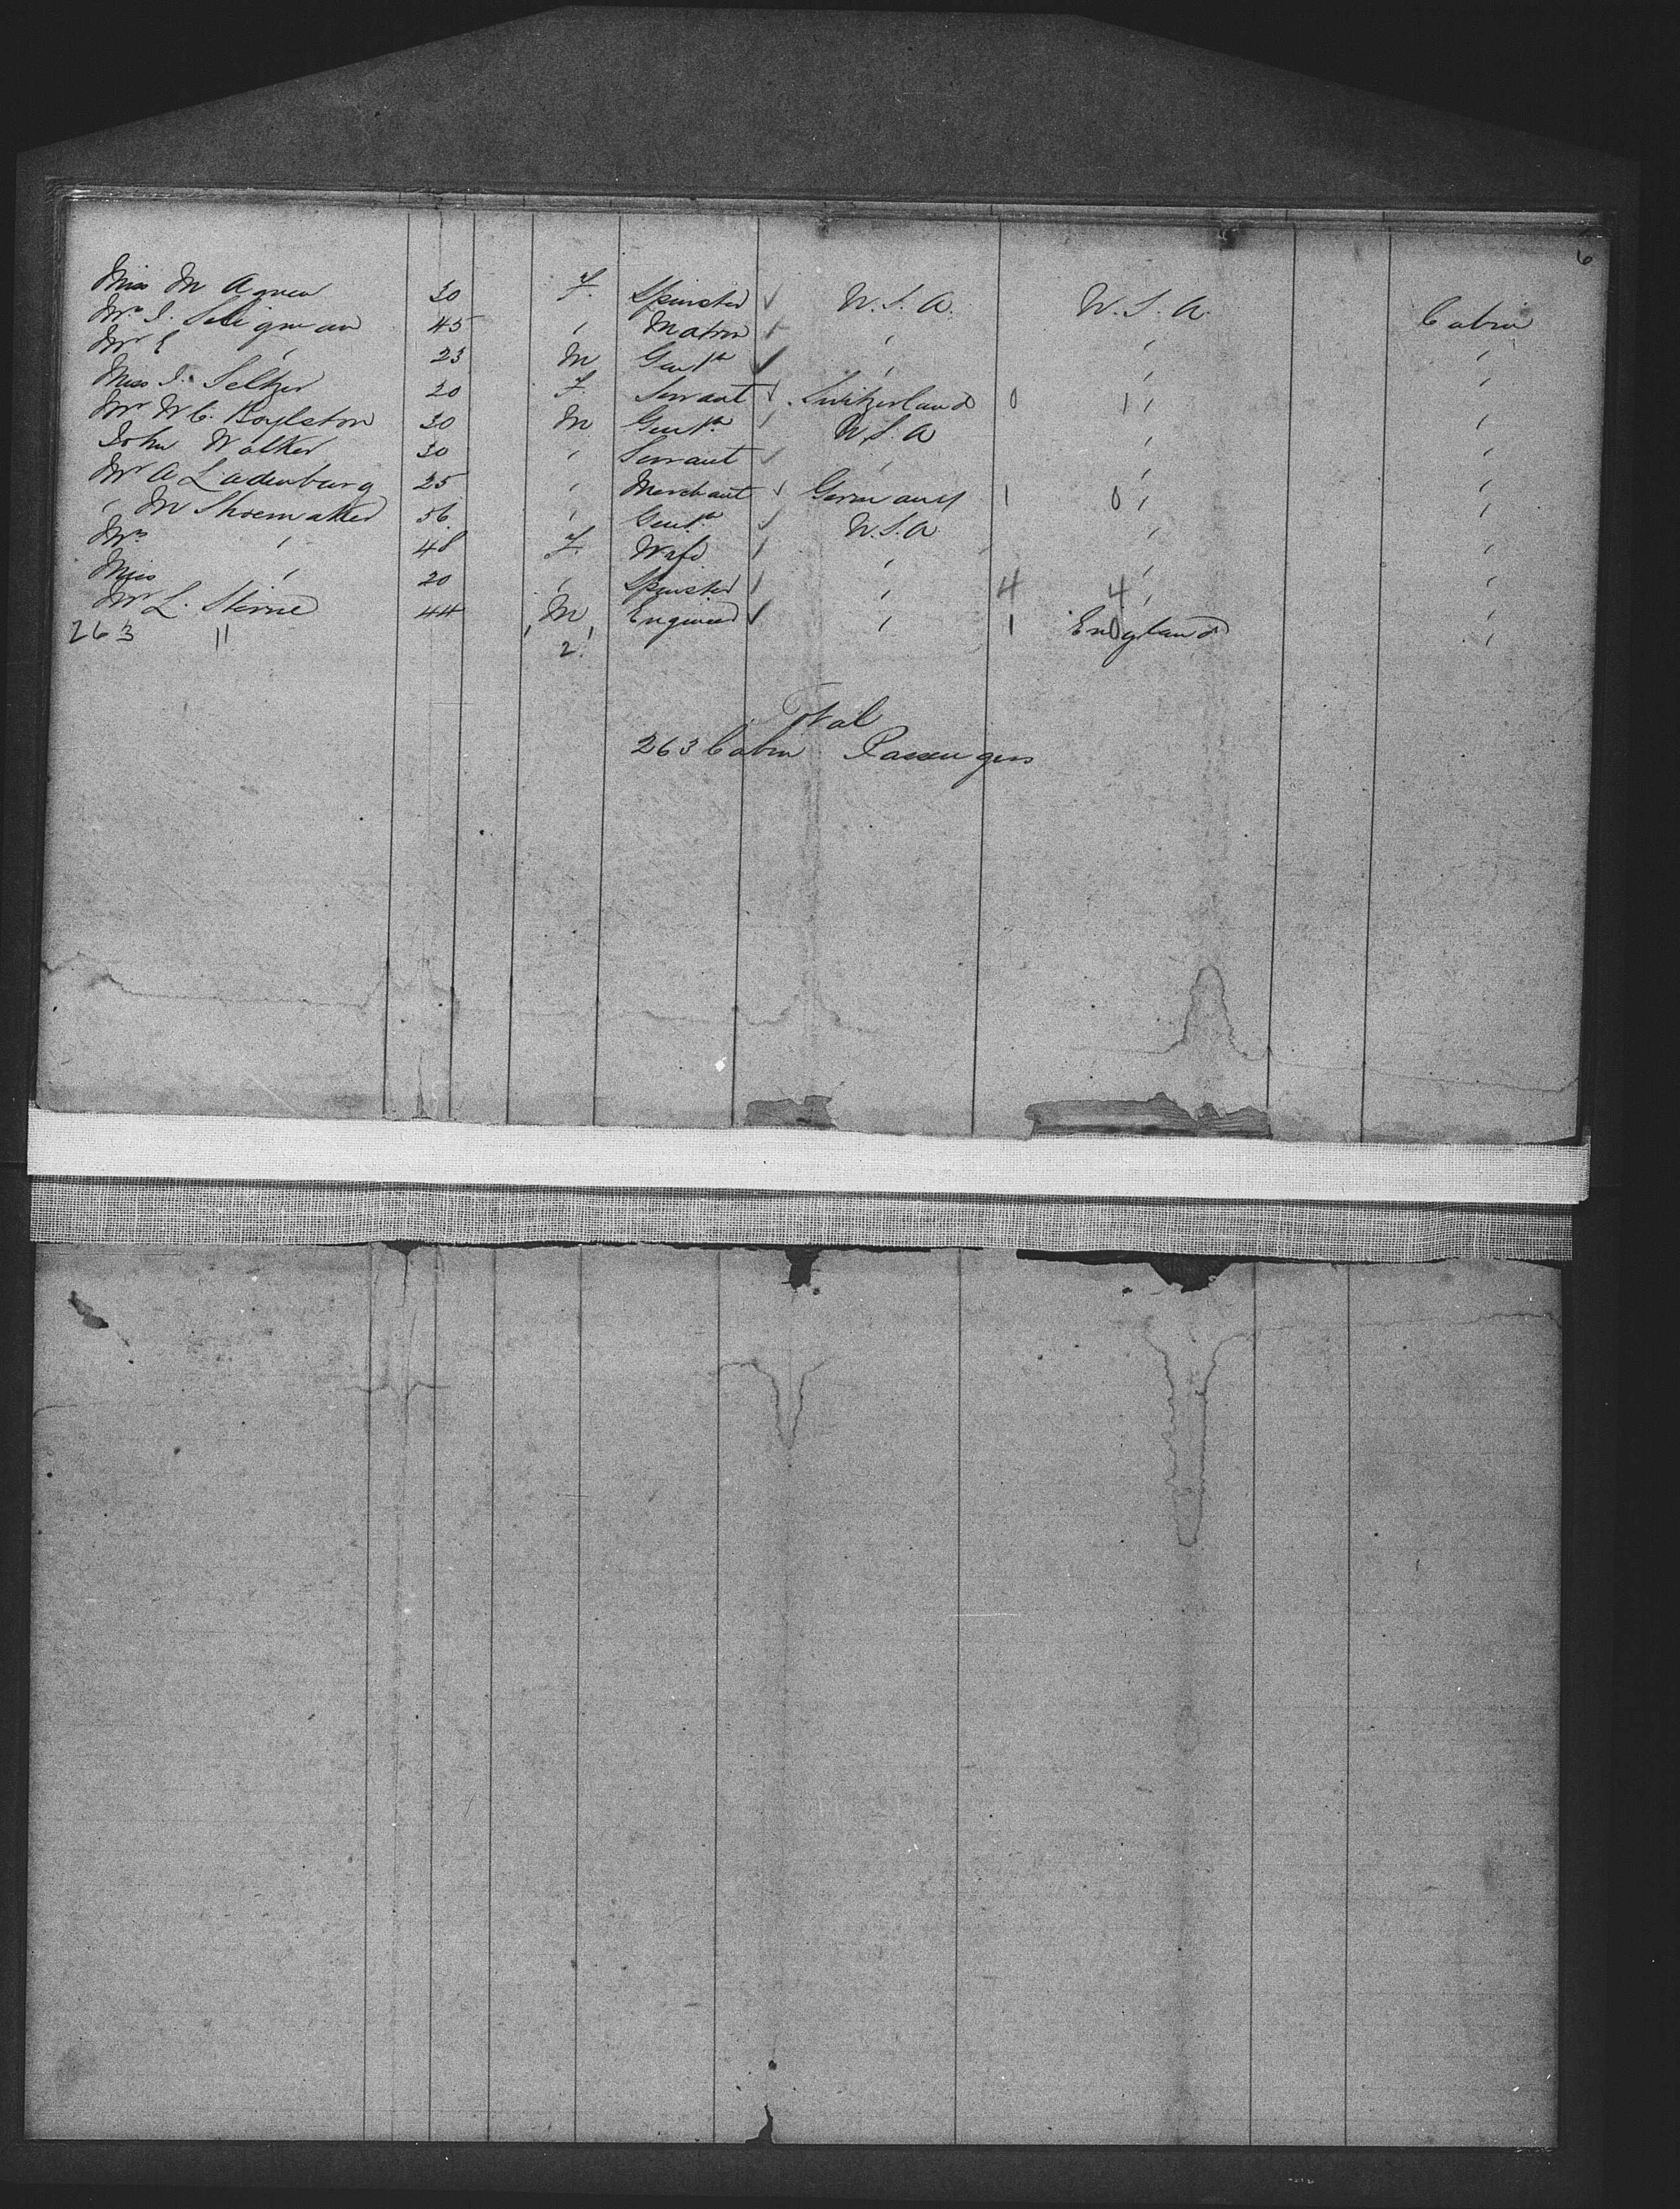 6
Miss M Agnew 30 F. Spinster ✓ U.S.A. U.S.A. Cabin
Mrs J. Seligman 45 " Matron " " "
Mr E " 23 M Gentn ✓ " " "
Miss J. Seltzer 20 F. Servant Switzerland 0 1 " "
Mr W.C. Boylston 30 M Gentn ✓ U.S.A " "
John Walker 30 " Servant ✓ " " "
Mr A Ladenburg 25 " Merchant Germany 1 0 " "
" M Shoemaker 56 " Gentn ✓ U.S.A " "
Mrs " 48 F. Wife " " "
Miss " 20 " Spinster " 4 4 " "
Mr L. Sterne 44 M Engineer ✓ " 1 0 England "
263 11 2
Total
263 Cabin Passengers